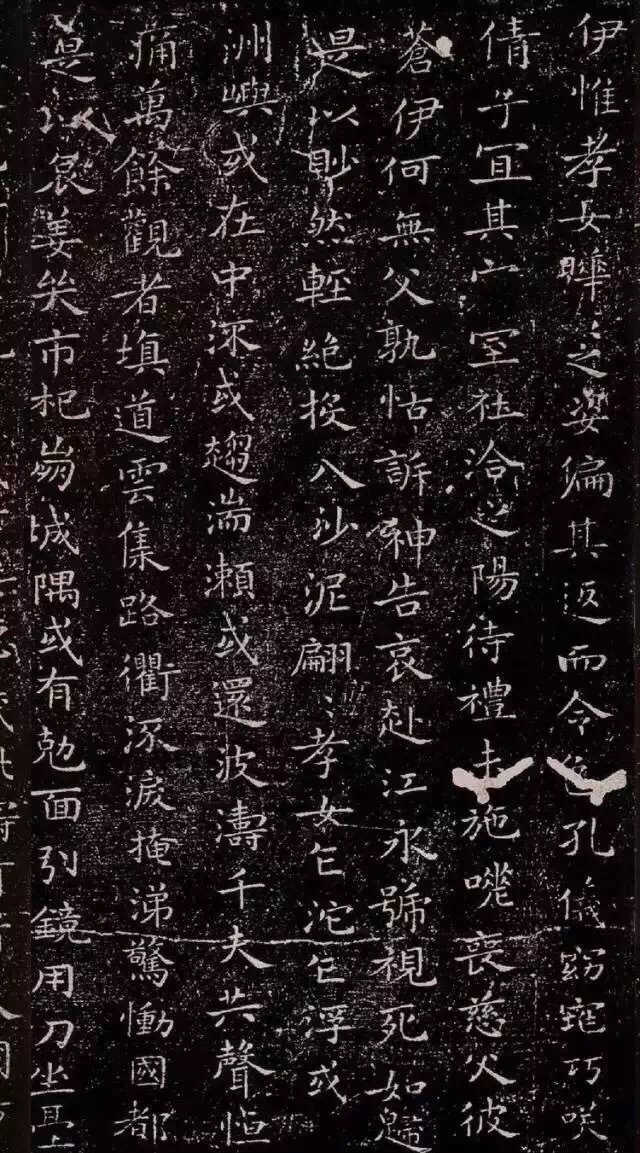 伊惟孝女曄〻之姿偏其返而令色孔儀窈窕巧咲
倩兮冝其宀室在洽之陽待禮未施嗟喪慈父彼
蒼伊何無父孰怙訴神告哀赴江永號視死如歸
是以眇然輕絶投入沙泥翩〻孝女乍沱乍浮或
洲嶼或在中深或趨湍瀬或還波濤千夫共聲恒
痛萬餘觀者填道雲集路衢泝淚掩涕驚慟國都
是以哀姜㢤市杞崩城隅或有勊面引鏡用刀坐䑓